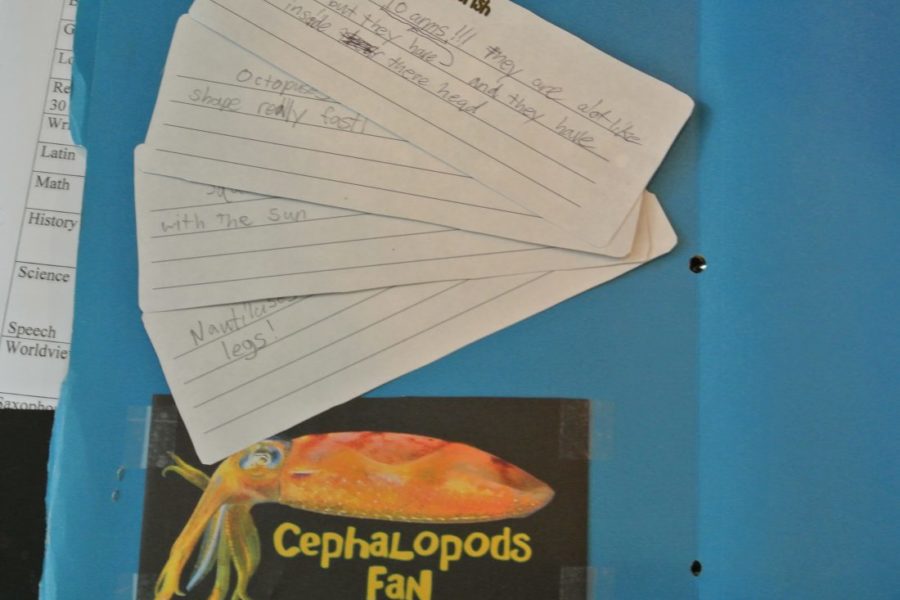 ish
10 arms!!! they are alot like
but they have and they have
inside there head
Octopuses
shape really fast!
with the sun
Nautiluses
legs!
Cephalopods
Fan
Re
30
Wri
Latin
Math
History
Science
Speech
Worldvie
Saxopho